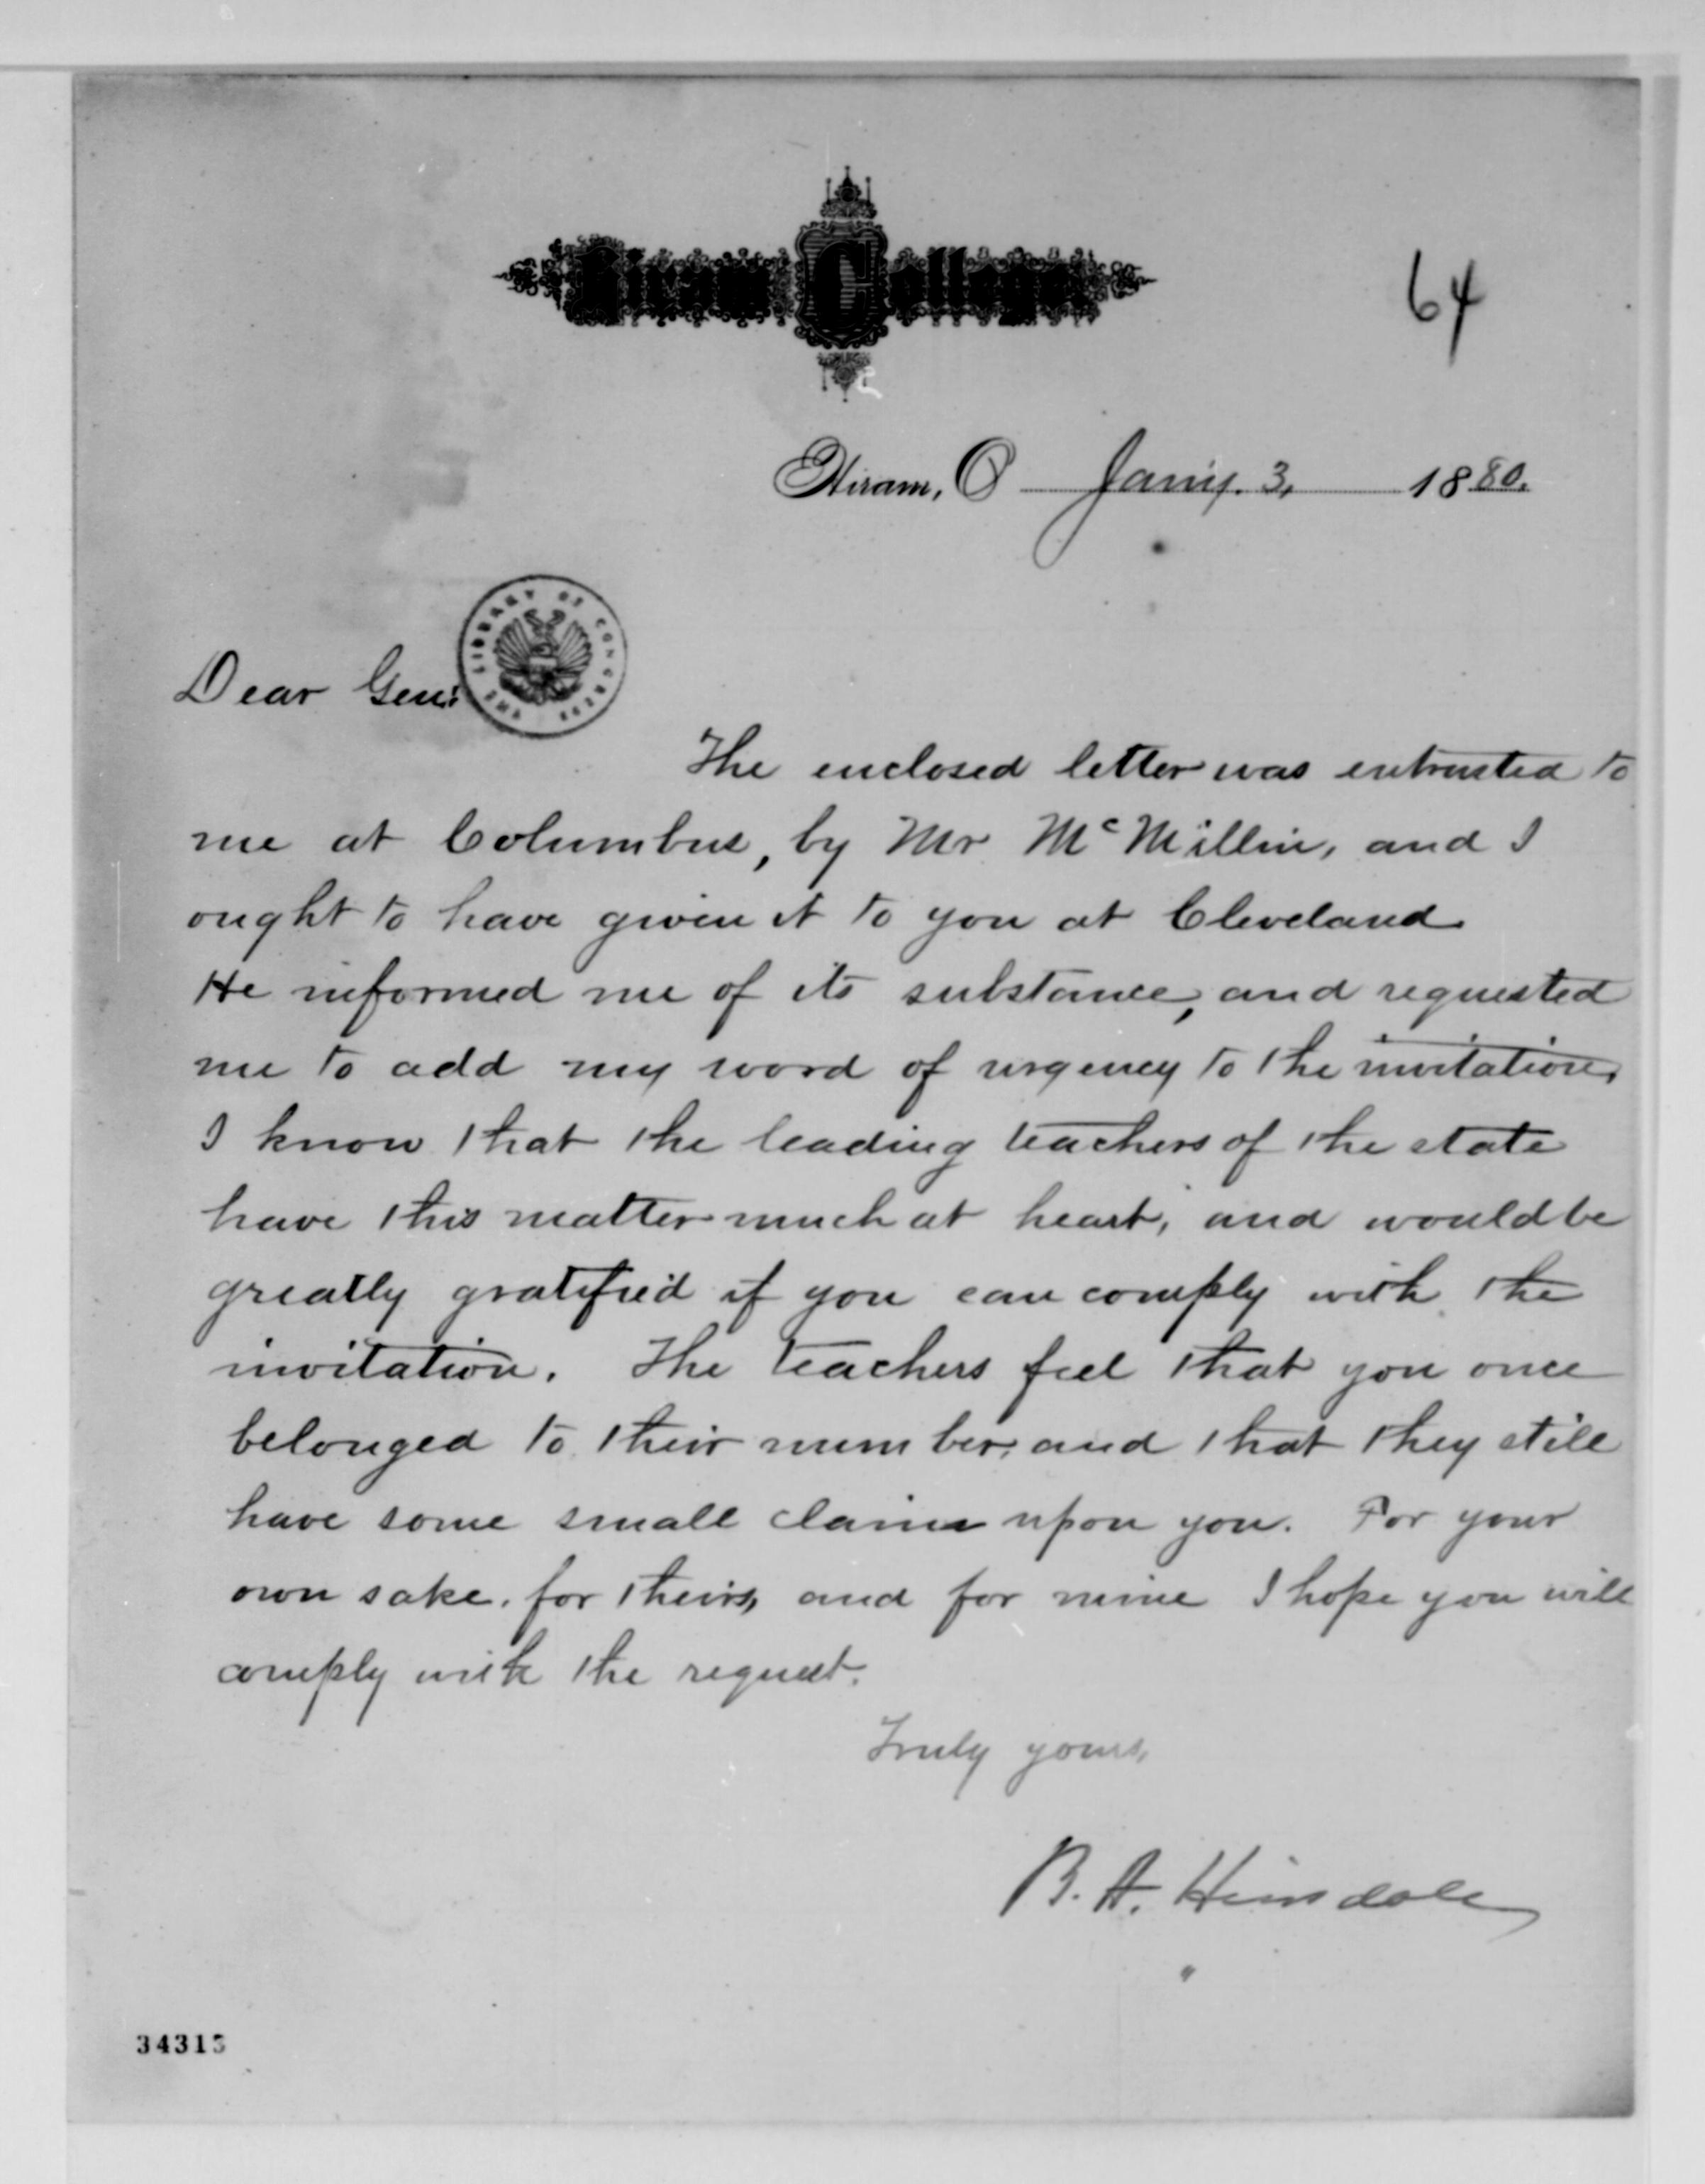 Hiram College
64
Hiram, O Jany. 3, 1880.
THE LIBRARY OF CONGRESS
Dear Gen:
The enclosed letter was entrusted to
me at Columbus, by Mr McMillin, and I
ought to have given it to you at Cleveland
He informed me of its substance, and requested
me to add my word of urgency to the invitation,
I know that the leading teachers of the state
have this matter much at heart, and would be
greatly gratified if you can comply with the
invitation. The teachers feel that you once
belonged to their number, and that they still
have some small claim upon you. For your
own sake, for theirs, and for mine I hope you will
comply with the request.
Truly yours,
B. A. Hinsdale